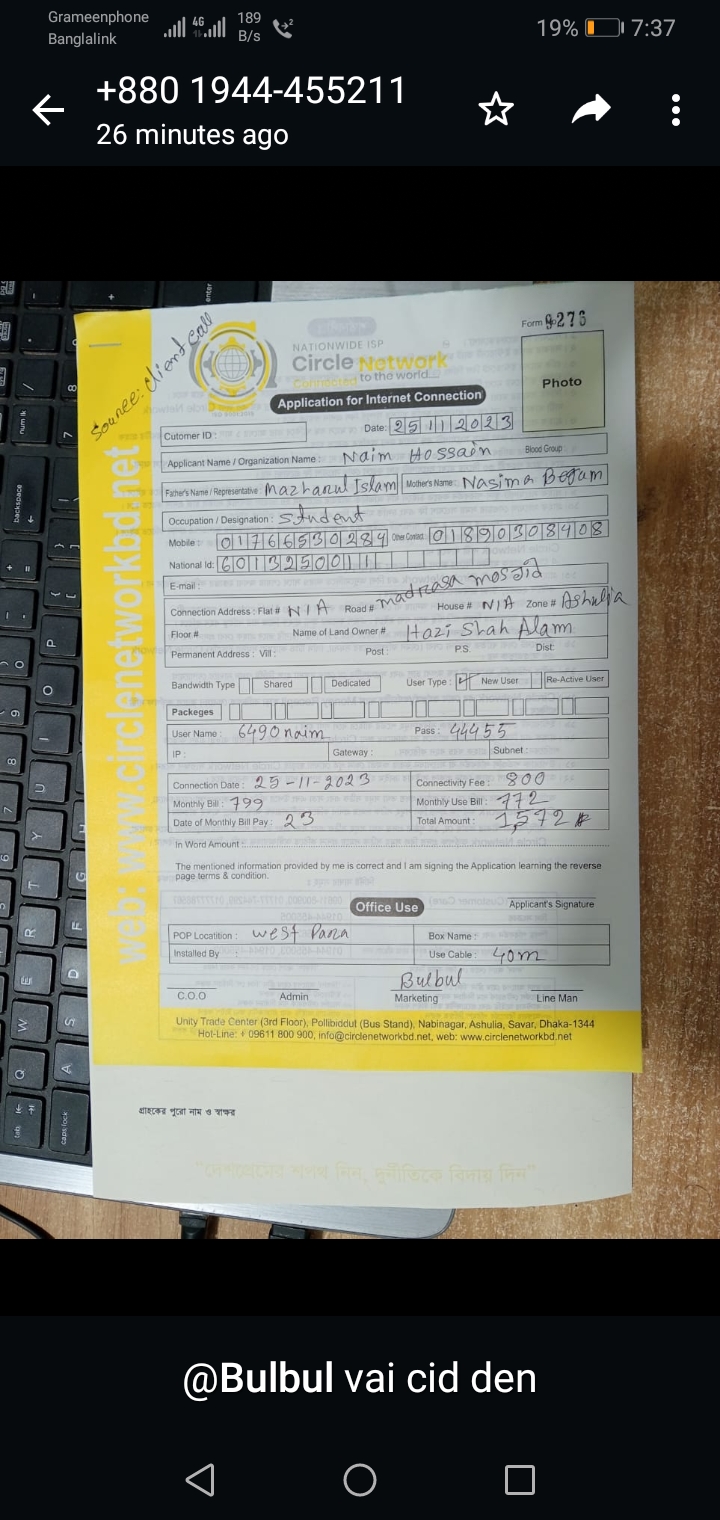 Grameenphone
Banglalink
4G
189
B/s
19%
7:37
+880 1944-455211
26 minutes ago
Source: Client Call
Form 9276
NATIONWIDE ISP
Circle Network
Connected to the world...
Photo
Application for Internet Connection
Cutomer ID :
Date: 25 11 2023
Applicant Name / Organization Name : Naim Hossain Blood Group
Father's Name / Representative : Mazharul Islam Mother's Name : Nasima Begum
Occupation / Designation : Student
Mobile : 01766530284 Other Contact 01890308408
National Id: 6013250011
E-mail :
Connection Address : Flat # N/A Road # madrasa mosjid House # N/A Zone # Ashulia
Floor # Name of Land Owner # Hazi Shah Alam
Permanent Address : Vill : Post : P.S. Dist:
Bandwidth Type Shared Dedicated User Type : New User Re-Active User
Packeges
User Name : 6490naim Pass : 44455
IP : Gateway : Subnet :
Connection Date : 25-11-2023 Connectivity Fee : 800
Monthly Bill : 799 Monthly Use Bill : 772
Date of Monthly Bill Pay : 23 Total Amount : 1,572
In Word Amount :
The mentioned information provided by me is correct and I am signing the Application learning the reverse
page terms & condition.
Office Use
Applicant's Signature
POP Locatition : West Para Box Name :
Installed By : Use Cable : 40m
Bulbul
C.O.O Admin Marketing Line Man
Unity Trade Center (3rd Floor), Pollibiddut (Bus Stand), Nabinagar, Ashulia, Savar, Dhaka-1344
Hot-Line: + 09611 800 900, info@circlenetworkbd.net, web: www.circlenetworkbd.net
web: www.circlenetworkbd.net
গ্রাহকের পুরো নাম ও স্বাক্ষর
"দেশপ্রেমের শপথ নিন, দুর্নীতিকে বিদায় দিন"
@Bulbul vai cid den